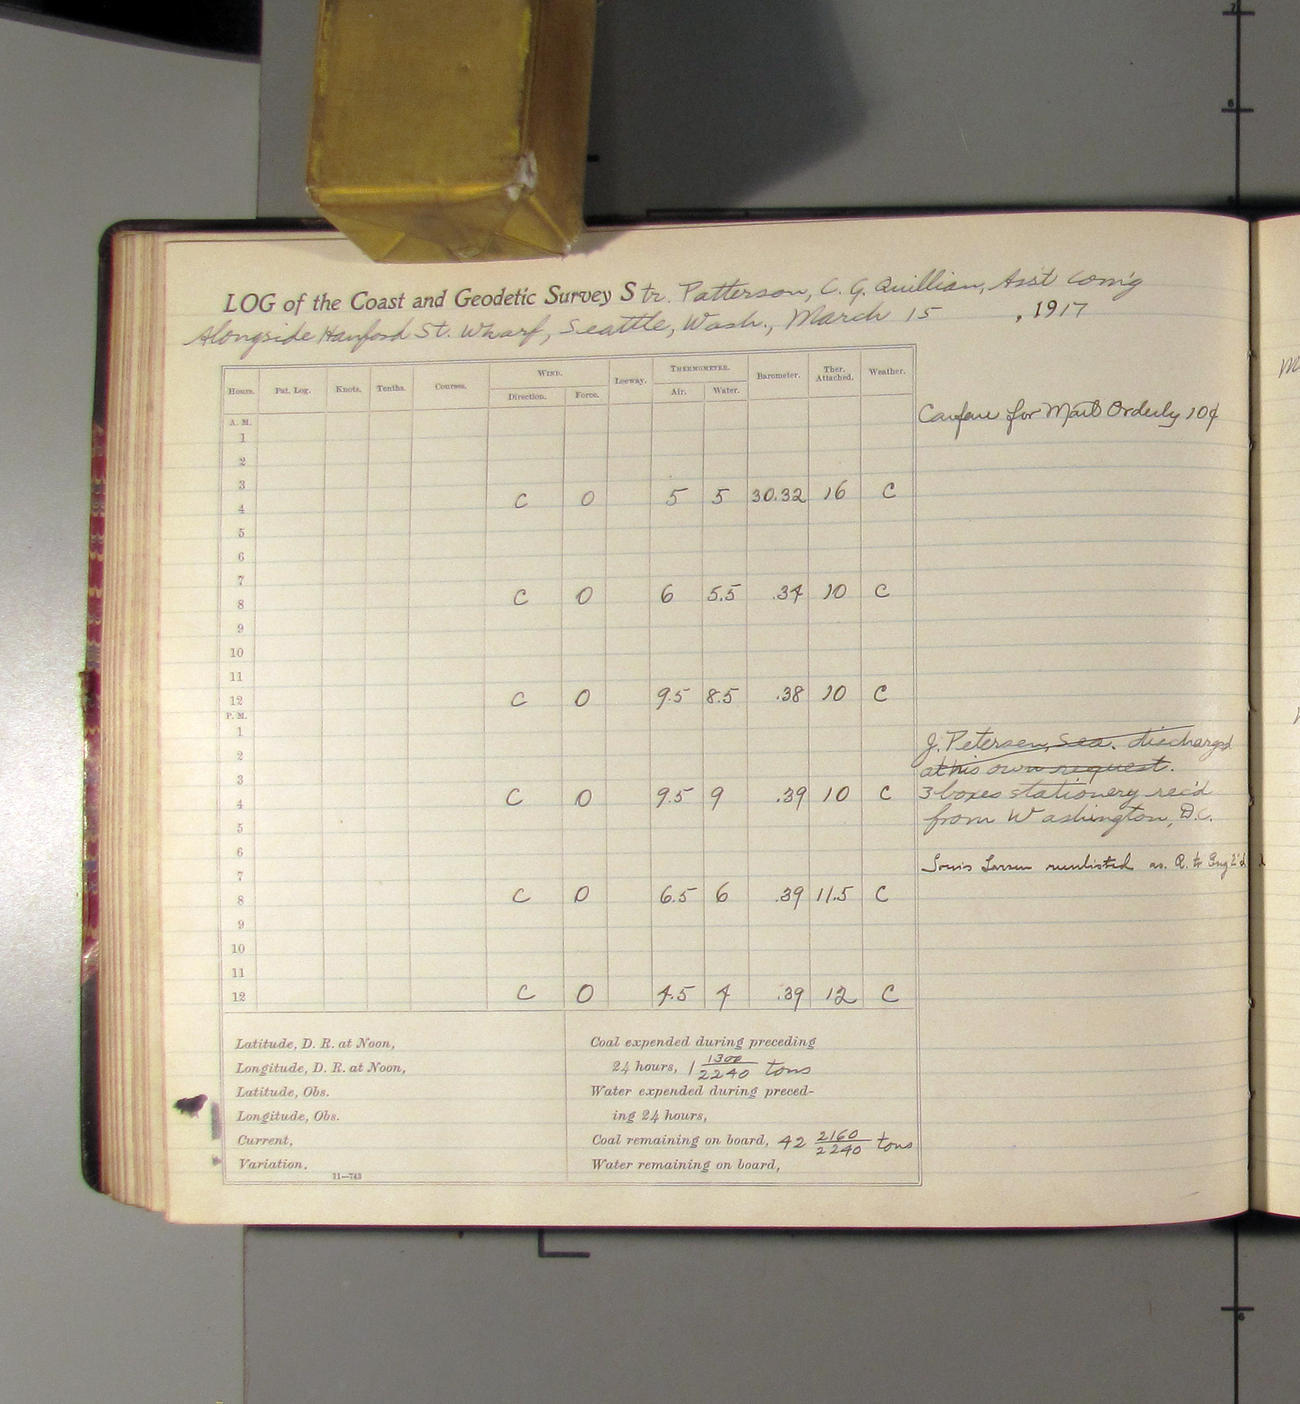 LOG of the Coast and Geodetic Survey Str. Patterson, C. G. Quillian, Asst Com'g
Alongside Hanford St. Wharf, Seattle, Wash., March 15, 1917
Hours. Pat. Log. Knots. Tenths. Courses. WIND. Direction. Force. Leeway. THERMOMETER. Air. Water. Barometer. Ther. Attached. Weather.
A. M.
Carfare for Mail Orderly 10¢
1
2
3
4 C 0 5 5 30.32 16 C
5
6
7
8 C 0 6 5.5 .34 10 C
9
10
11
12 C 0 9.5 8.5 .38 10 C
P. M.
1 J. Petersen, Sea. discharged
2 at his own request.
3 3 boxes stationery rec'd
4 C 0 9.5 9 .39 10 C
from Washington, D.C.
5
6 Louis Larsen reenlisted as
7
8 C 0 6.5 6 .39 11.5 C
9
10
11
12 C 0 4.5 4 .39 12 C
Latitude, D. R. at Noon,
Longitude, D. R. at Noon,
Latitude, Obs.
Longitude, Obs.
Current,
Variation.
11—743
Coal expended during preceding
24 hours, 1 1300/2240 tons
Water expended during preced-
ing 24 hours,
Coal remaining on board, 42 2160/2240 tons
Water remaining on board,